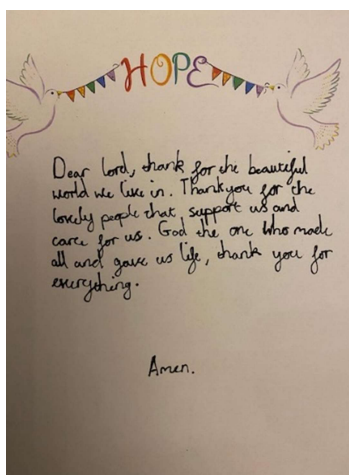 HOPE
Dear Lord, thank for the beautiful
world we live in. Thankyou for the
lovely people that support us and
care for us. God the one who made
all and gave us life, thank you for
everything.
Amen.